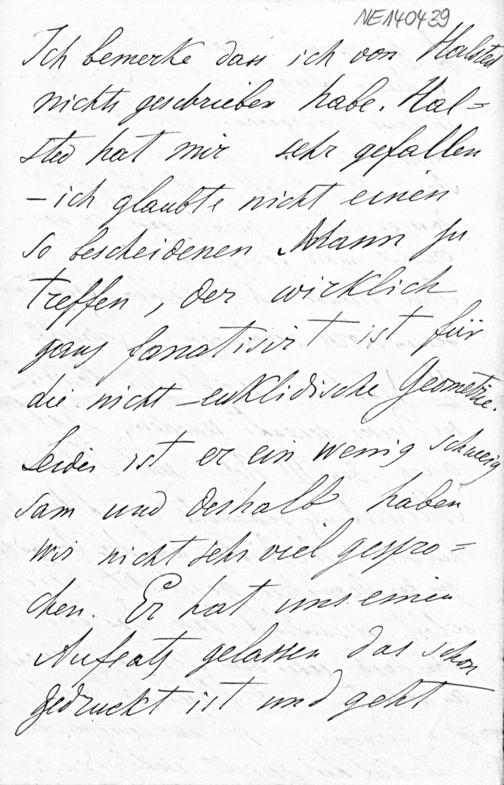 NE140439
Ich bemerke dass ich von Halsted
nichts geschrieben habe. Hal=
sted hat mir sehr gefallen
– ich glaubte nicht einen
so bescheidenen Mann zu
treffen, der wirklich
ganz fanatisirt ist für
die nicht-euklidische Geometrie.
Leider ist er ein wenig schweig
sam und deshalb haben
wir nicht sehr viel gespro=
chen. Er hat uns einen
Aufsatz gelassen das schon
gedruckt ist und geht